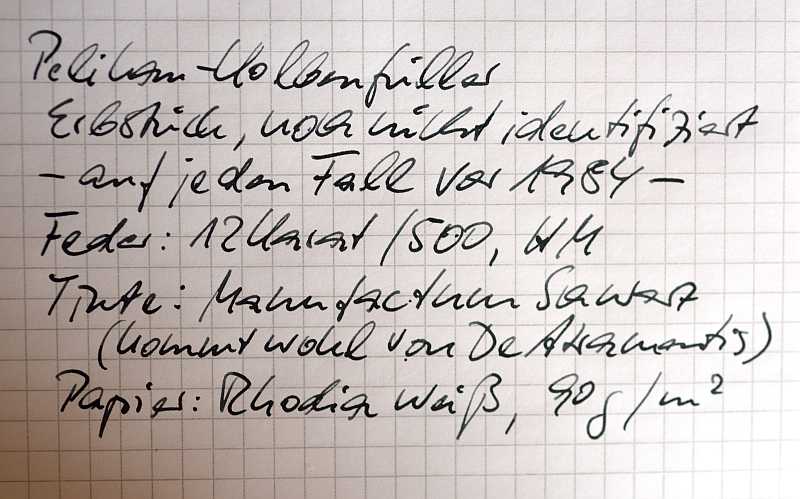 Pelikan-Kolbenfüller
Erbstück, noch nicht identifiziert
- auf jeden Fall vor 1984 -
Feder: 12 Karat / 500, HM
Tinte: Manufactum Schwarz
(kommt wohl von De Atramentis)
Papier: Rhodia Weiß, 90 g/m²